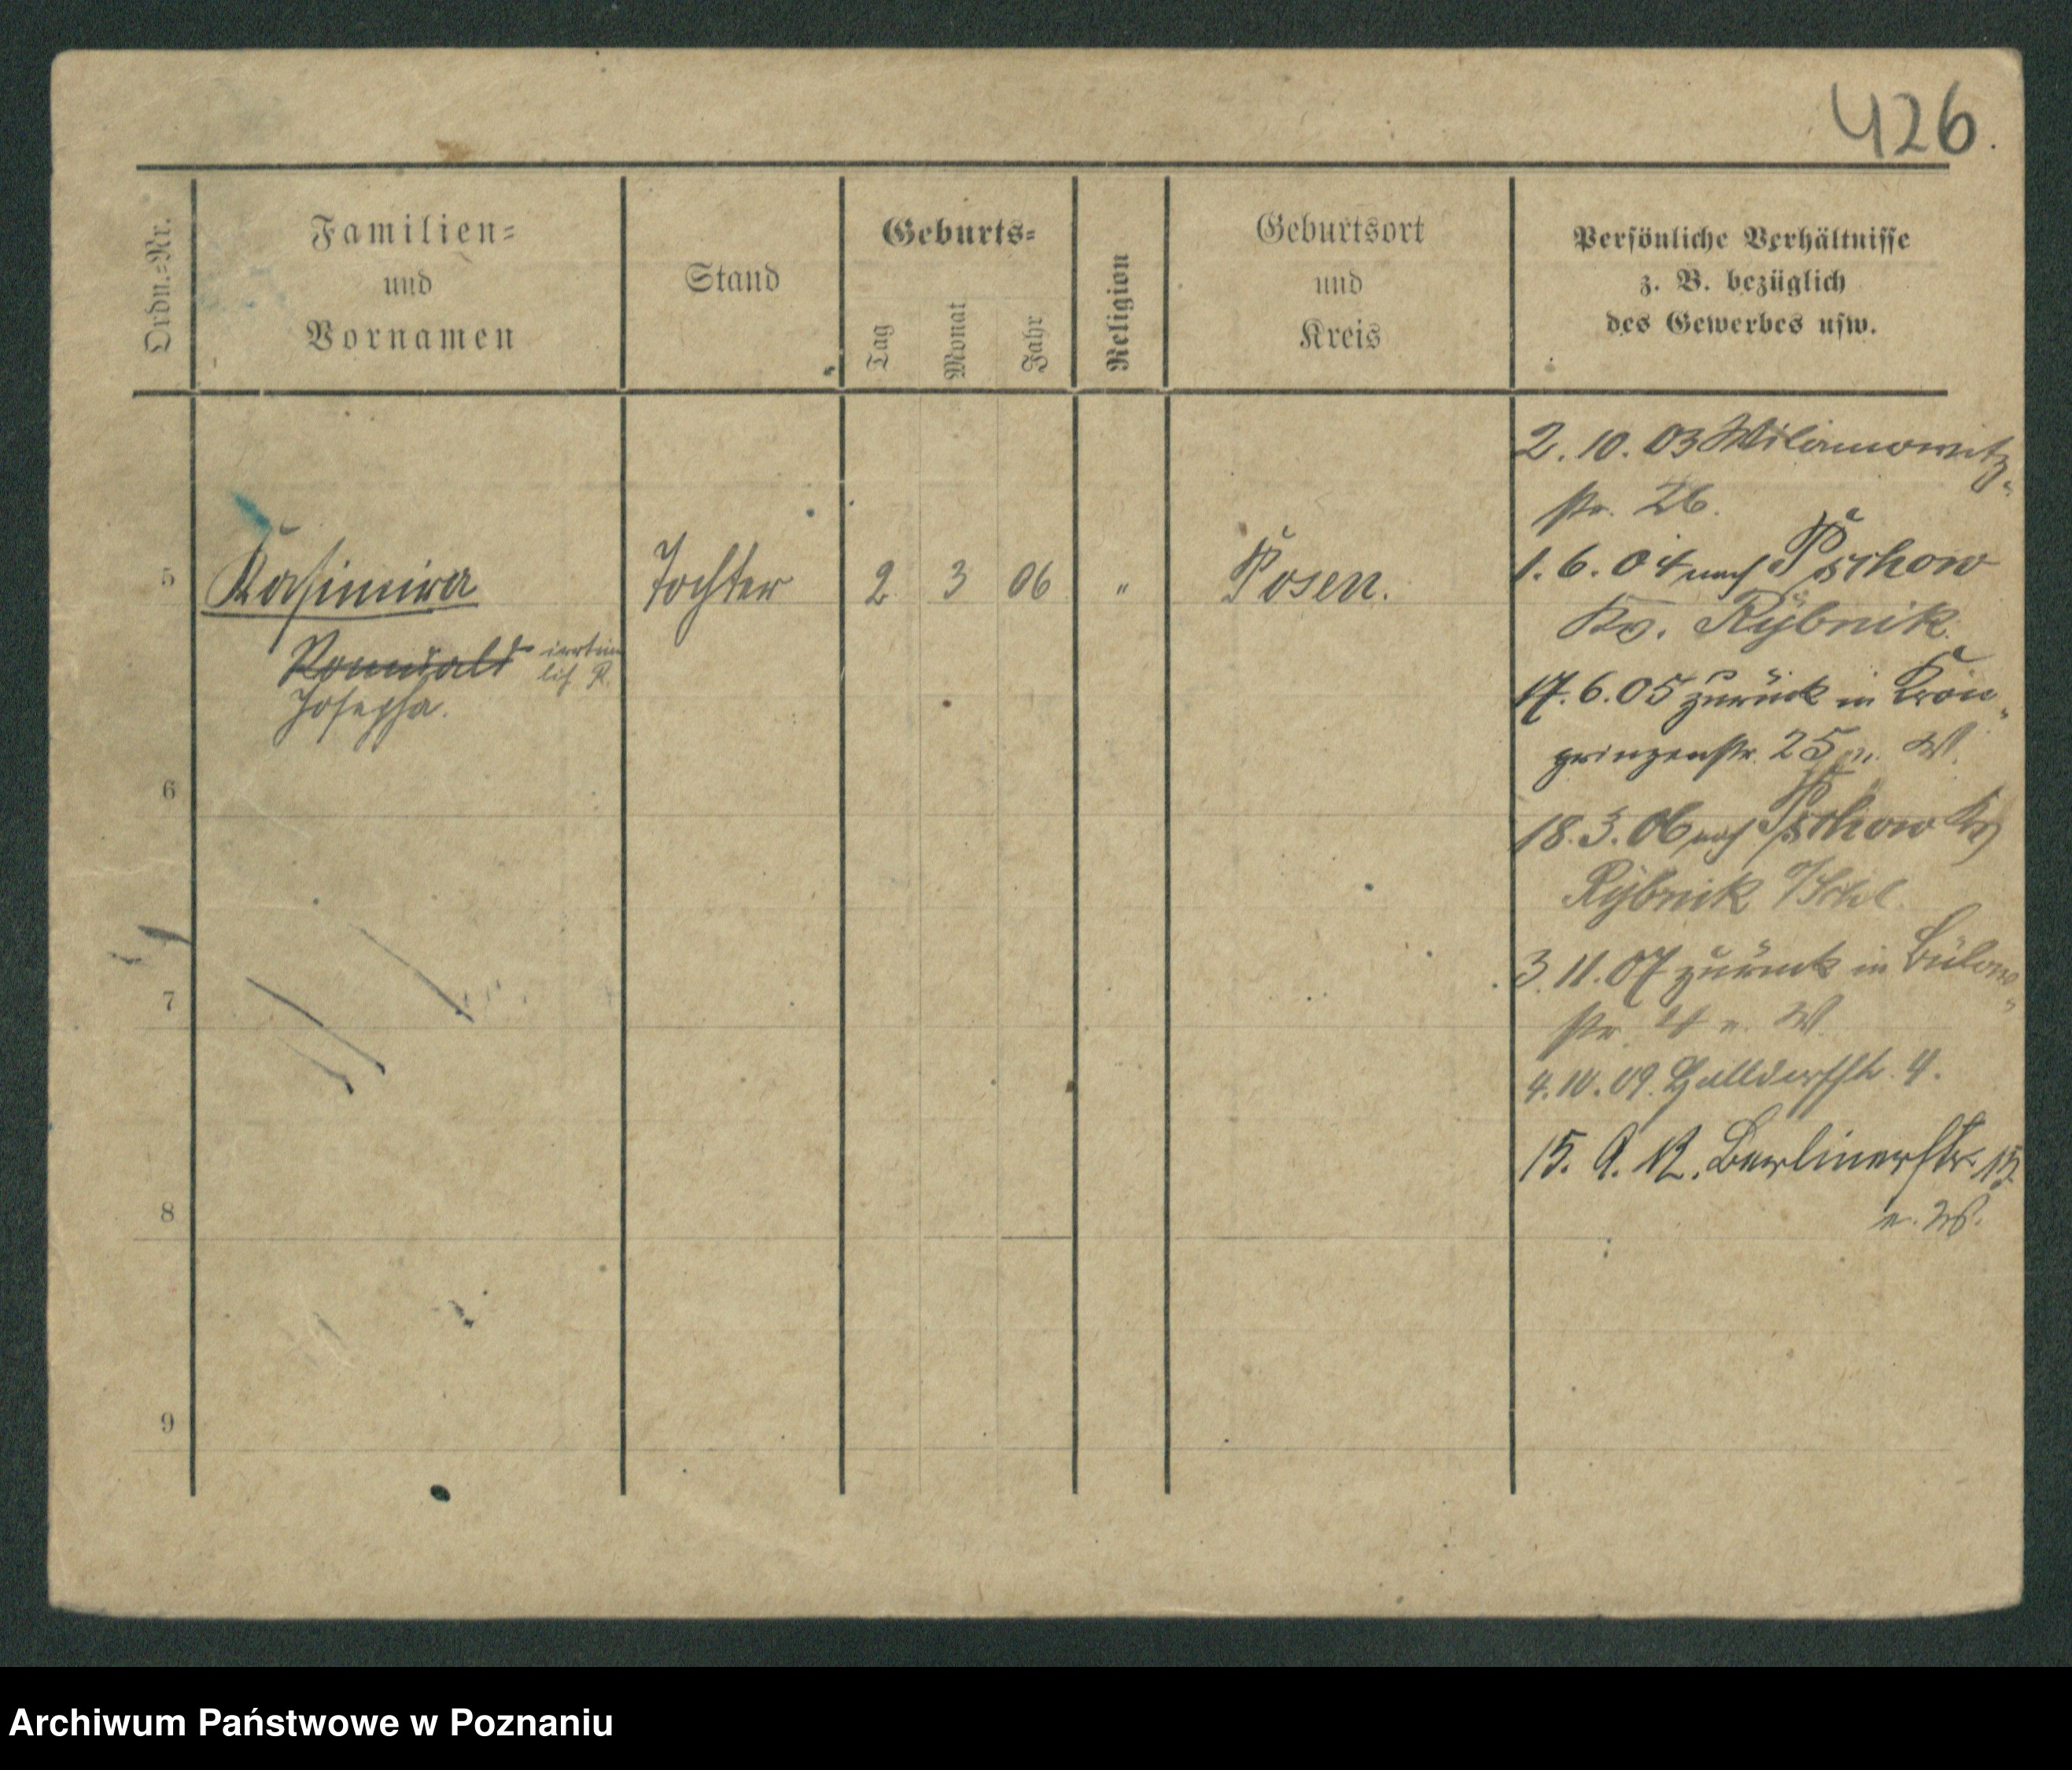 426.
Ordn.-Nr.
Familien-
und
Vornamen
Stand
Geburts-
Tag
Monat
Jahr
Religion
Geburtsort
und
Kreis
Persönliche Verhältnisse
z. B. bezüglich
des Gewerbes usw.
5 Kasimira Tochter 2 3 06 " Posen.
Romuald irrtüm
lich R.
Josepha.
6
7
8
9
2. 10. 03 Wilamowitz-
str. 26.
1. 6. 04 nach Pschow
Kr. Rybnik
17. 6. 05 zurück in Kron-
prinzenstr. 25 W.
18. 3. 06 nach Pschow Kr
Rybnik
3. 11. 07 zurück in Bülow-
str. 4 e. W.
4. 10. 09. 4.
15. 9. 12. Berlinerstr. 15.
e. W.
Archiwum Państwowe w Poznaniu